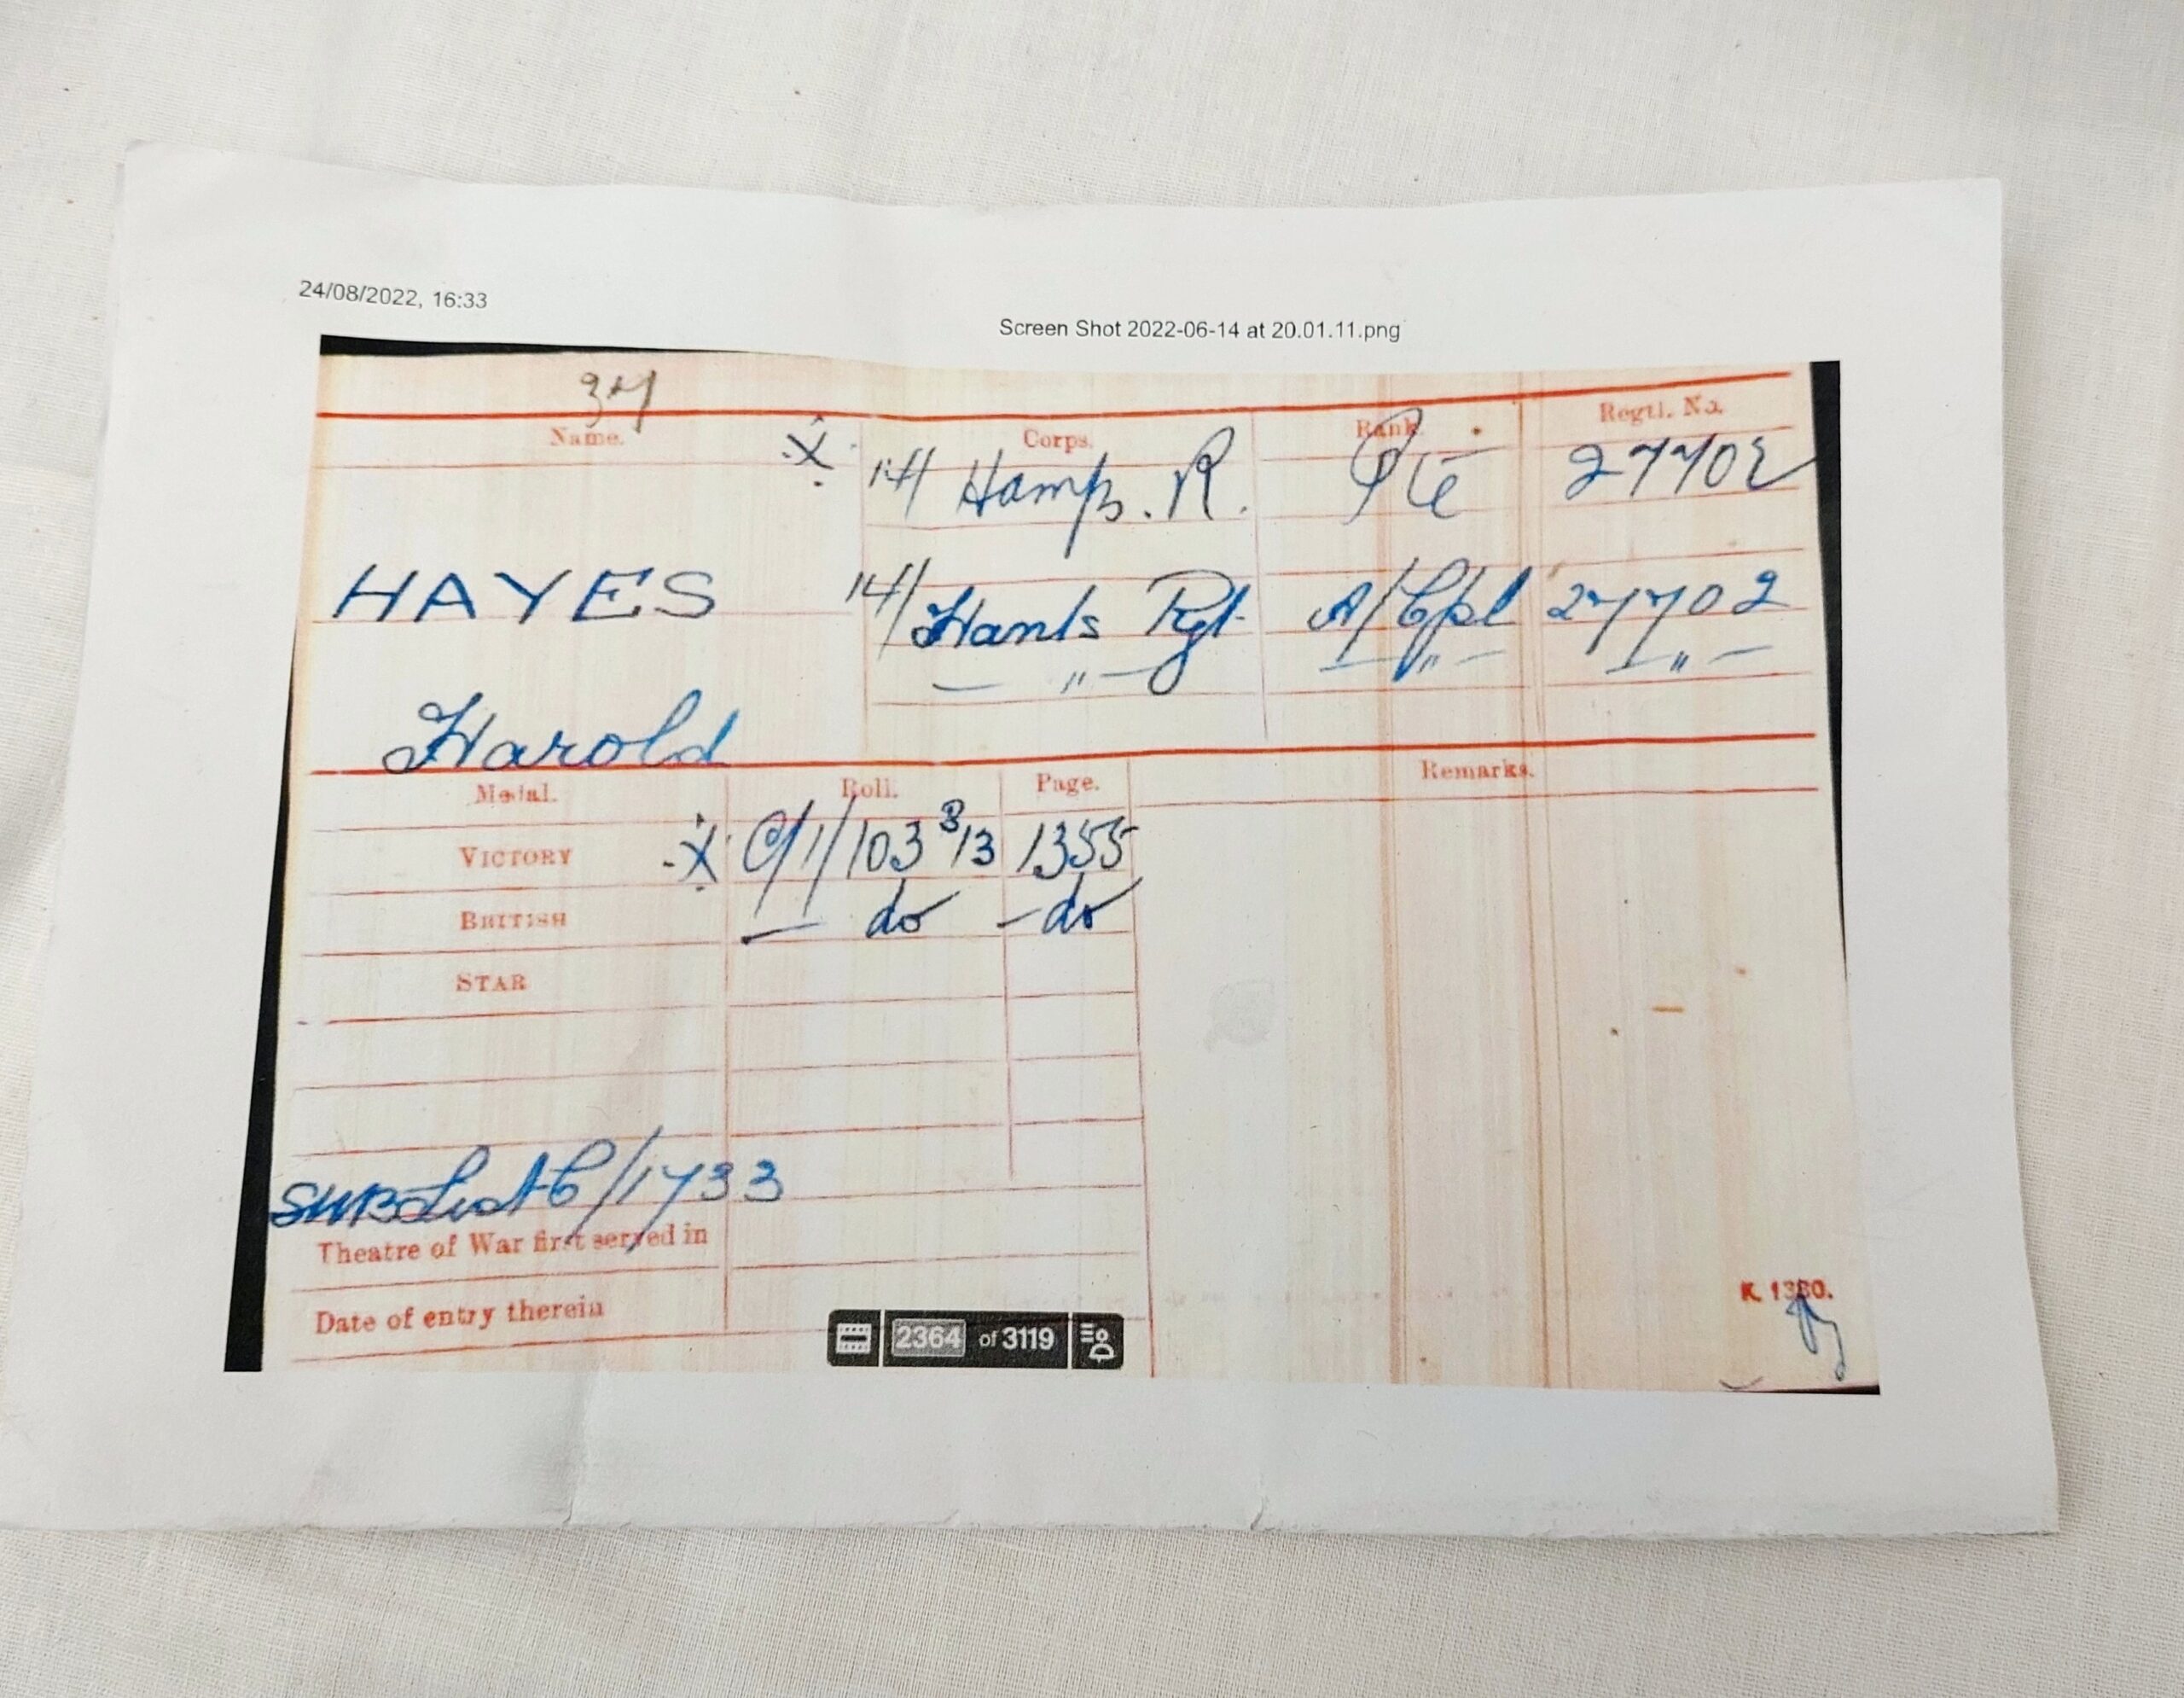 24/08/2022, 16:33
Screen Shot 2022-06-14 at 20.01.11.png
37
Name. Corps. Rank. Regtl. No.
X 14/ Hamps. R. Pte 27702
HAYES 14/ Hants Rgt. A/Cpl 27702
— " — — " — — " —
Harold
Medal. Roll. Page. Remarks.
VICTORY X C/1/103 B/3 1355
BRITISH — do — do
STAR
SWB List AC/1733
Theatre of War first served in
Date of entry therein
K. 1380.
2364 of 3119